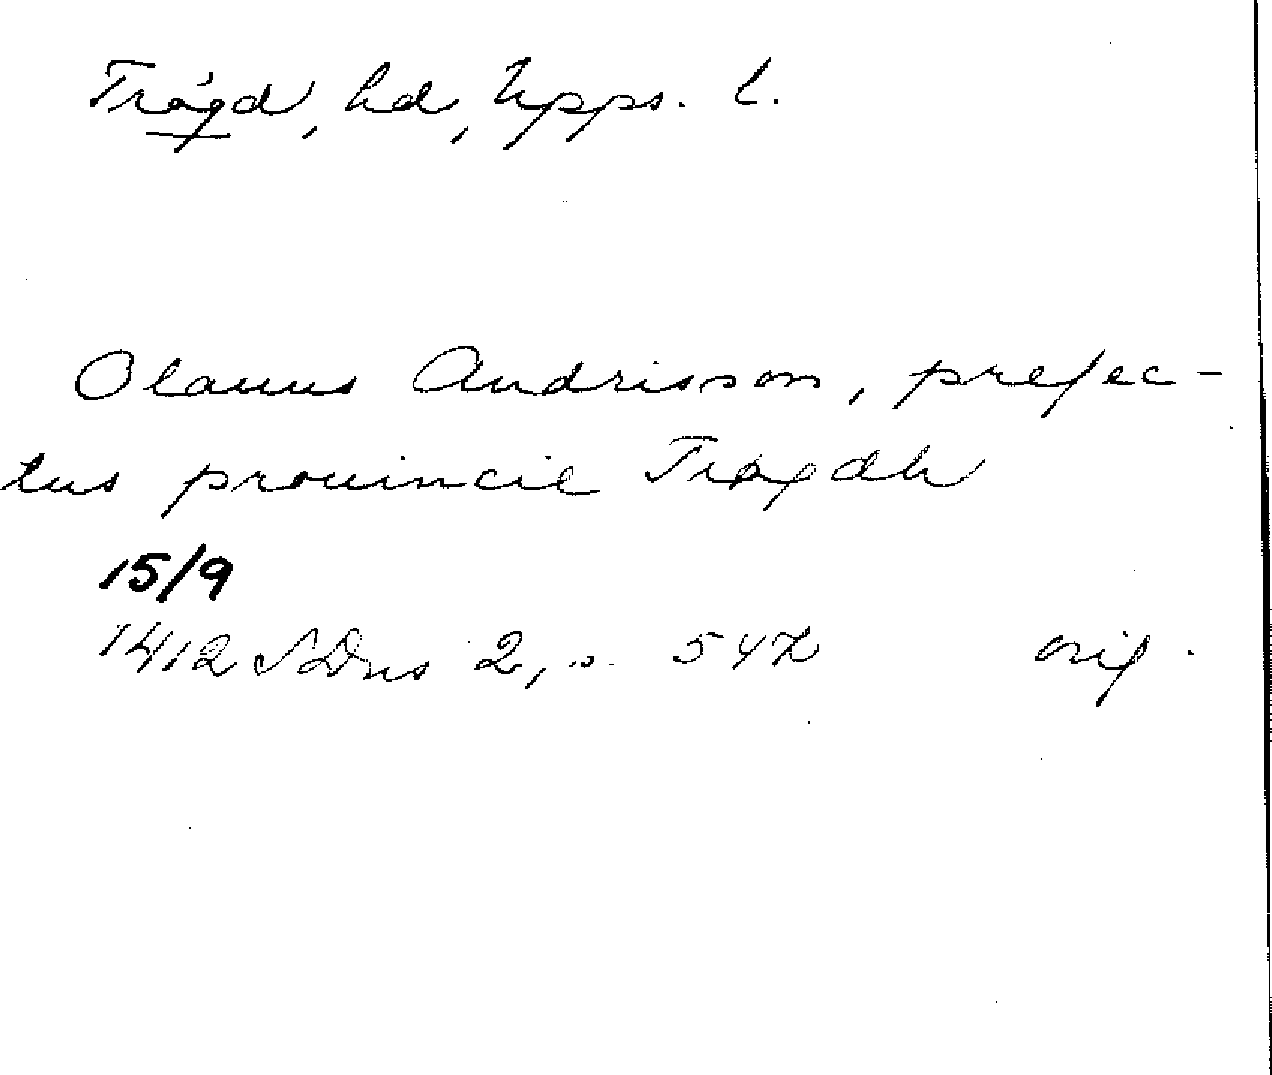 Trögd, hd, Upps. l.
Olauus Andrisson, prefec-
tus prouincie Trøgdh
15/9
1412 SDns 2, s. 542 orig.